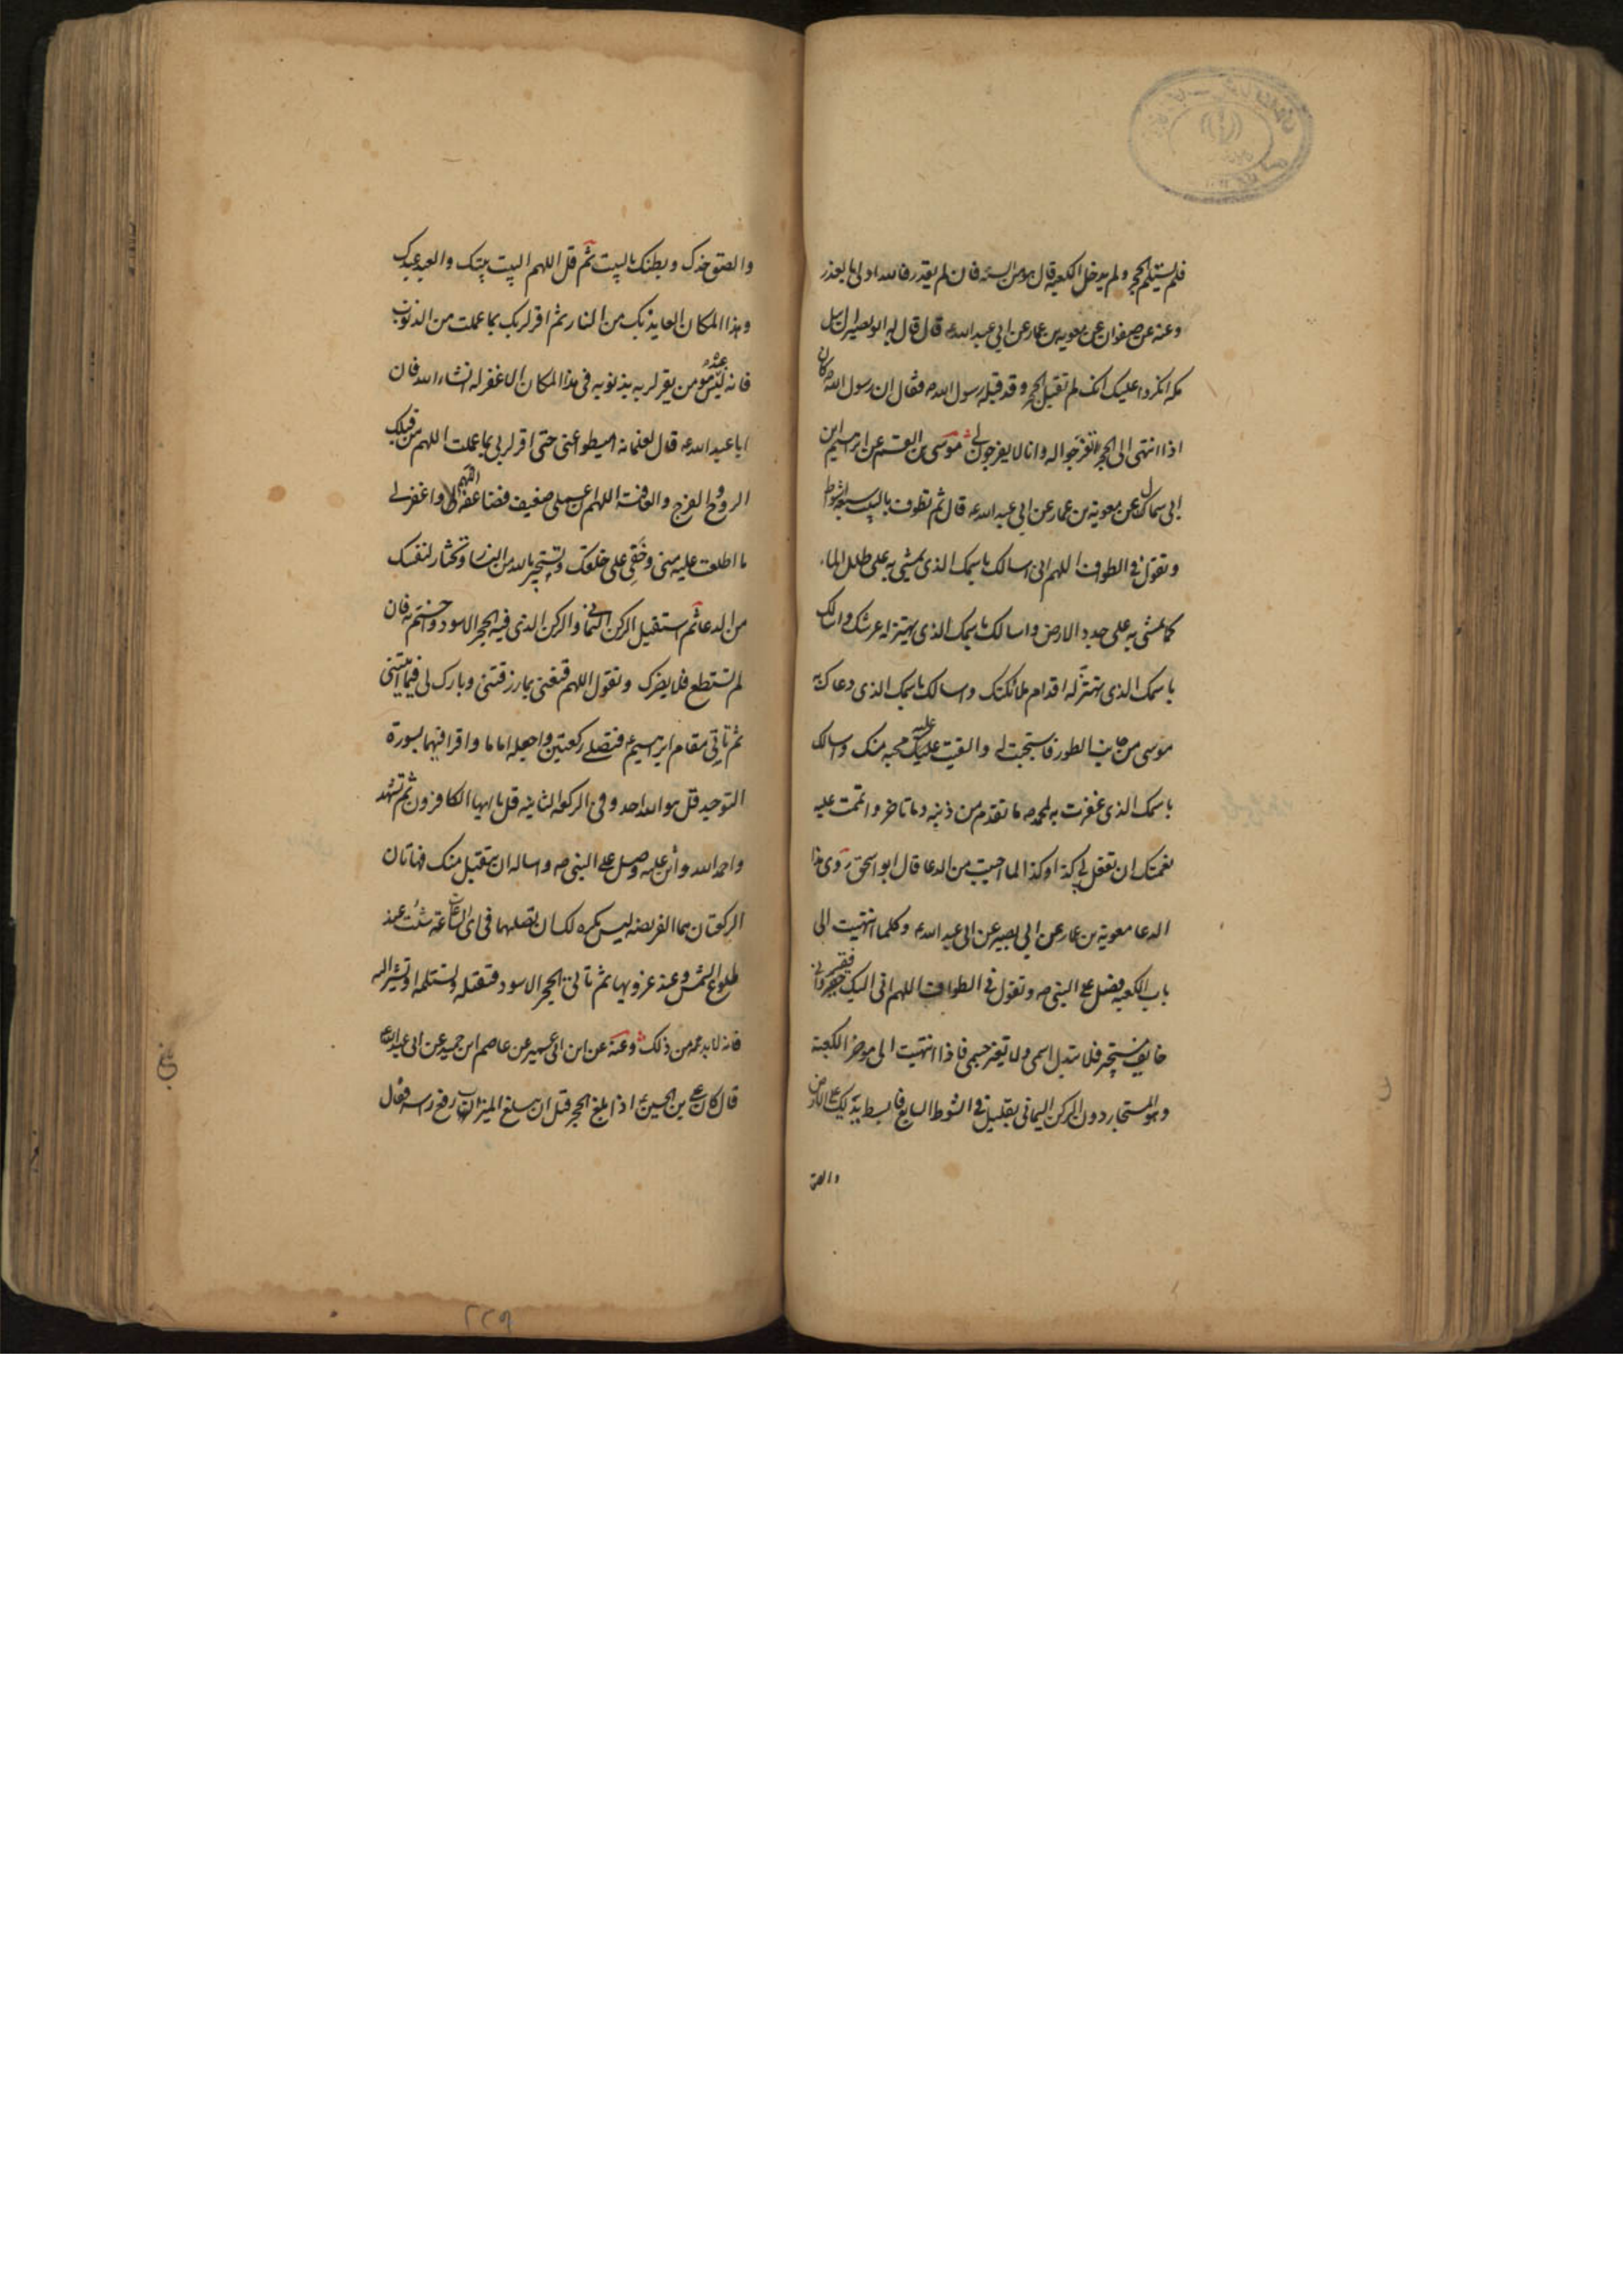 فلم يستلم الحجر ولم يدخل الكعبه قال هو من السنه فان لم يقدر فالله اولى بالعذر
وعنه عن صفوان عن معويه بن عمار عن ابي عبد الله ع قال قال له ابو بصير ان اهل
مكه انكروا عليك انك لم تقبل الحجر وقد قبله رسول الله ص فقال ان رسول الله ص كان
اذا انتهى الى الحجر يفرجوا له وانا لا يفرجون لي موسى بن القسم عن ابراهيم ابن
ابي سمال عن معوية بن عمار عن ابي عبد الله ع قال ثم تطوف بالبيت سبعة اشواط
وتقول في الطواف اللهم اني اسالك باسمك الذي يمشي به على طلل الماء
كما يمشى به على جدد الارض واسالك باسمك الذي يهتز له عرشك واسالك
باسمك الذي تهتز له اقدام ملائكتك واسالك باسمك الذي دعاك به
موسى من جانب الطور فاستجبت له والقيت عليك عليه محبه منك واسالك
باسمك الذي غفرت به لمحمد ص ما تقدم من ذنبه وما تاخر واتممت عليه
نعمتك ان تفعل بي كذا وكذا لما احببت من الدعا قال ابو اسحق روى هذا
الدعا معوية بن عمار عن ابي بصير عن ابي عبد الله ع وكلما انتهيت الى
باب الكعبه فصل على النبي ص وتقول في الطواف اللهم اني اليك فقير واني
خايف مستجير فلا تبدل اسمي ولا تغير جسمي فاذا انتهيت الى موخر الكعبة
وهو المستجار دون الركن اليماني بقليل في الشوط السابع فابسط يديك على الارض
والصق
والصق خدك وبطنك بالبيت ثم قل اللهم البيت بيتك والعبد عبدك
وهذا المكان العايذ بك من النار ثم اقر لربك بما عملت من الذنوب
فانه ليس عبد مومن يقر لربه بذنوبه في هذا المكان الا غفر له انشاء الله فان
ابا عبد الله ع قال لغلمانه اميطوا عني حتى اقر لربي بما عملت اللهم من قبلك
الروح والفرج والعافية اللهم ان عملي ضعيف فضاعفه لي اللهم واغفر لي
ما اطلعت عليه مني وخفي على خلقك وتستجير بالله من النار وتختار لنفسك
من الدعا ثم استقبل الركن اليماني والركن الذي فيه الحجر الاسود واختم به فان
لم تستطع فلا يضرك وتقول اللهم قنعني بما رزقتني وبارك لي فيما اتيتني
ثم تاتي مقام ابرهيم ع فتصلي ركعتين واجعله اماما واقرا فيهما بسورة
التوحيد قل هو الله احد وفي الركعه الثانيه قل يا ايها الكافرون ثم تشهد
واحمد الله واثن عليه وصل على النبي ص واساله ان يتقبل منك فهاتان
الركعتان هما الفريضه ليس يكره لك ان تصليهما في اي الساعات شئت عند
طلوع الشمس وعند غروبها ثم تاتي الحجر الاسود فتقبله وتستلمه او تشير اليه
فانه لا بد من ذلك وعنه عن ابن ابي عمير عن عاصم ابن حميد عن ابي عبد الله ع
قال كان على بن الحسين ع اذا بلغ الحجر قبل ان يبلغ الميزاب رفع راسه فقال
٢٢٩